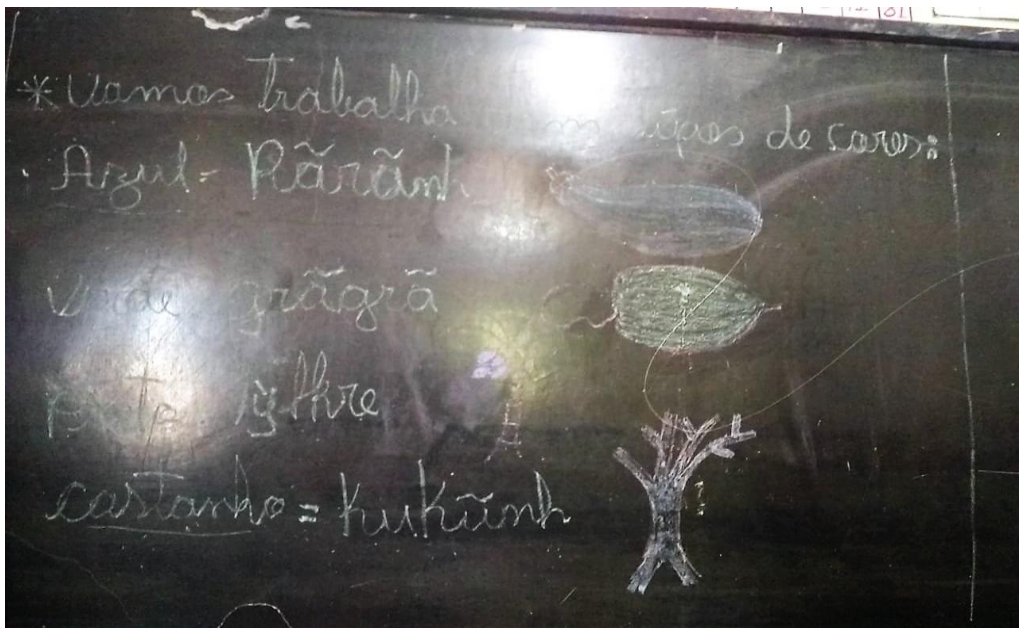 * Vamos trabalha os tipos de cores:
Azul = Rãrãnh
Verde grãgrã
preto
castanho = kukũnh